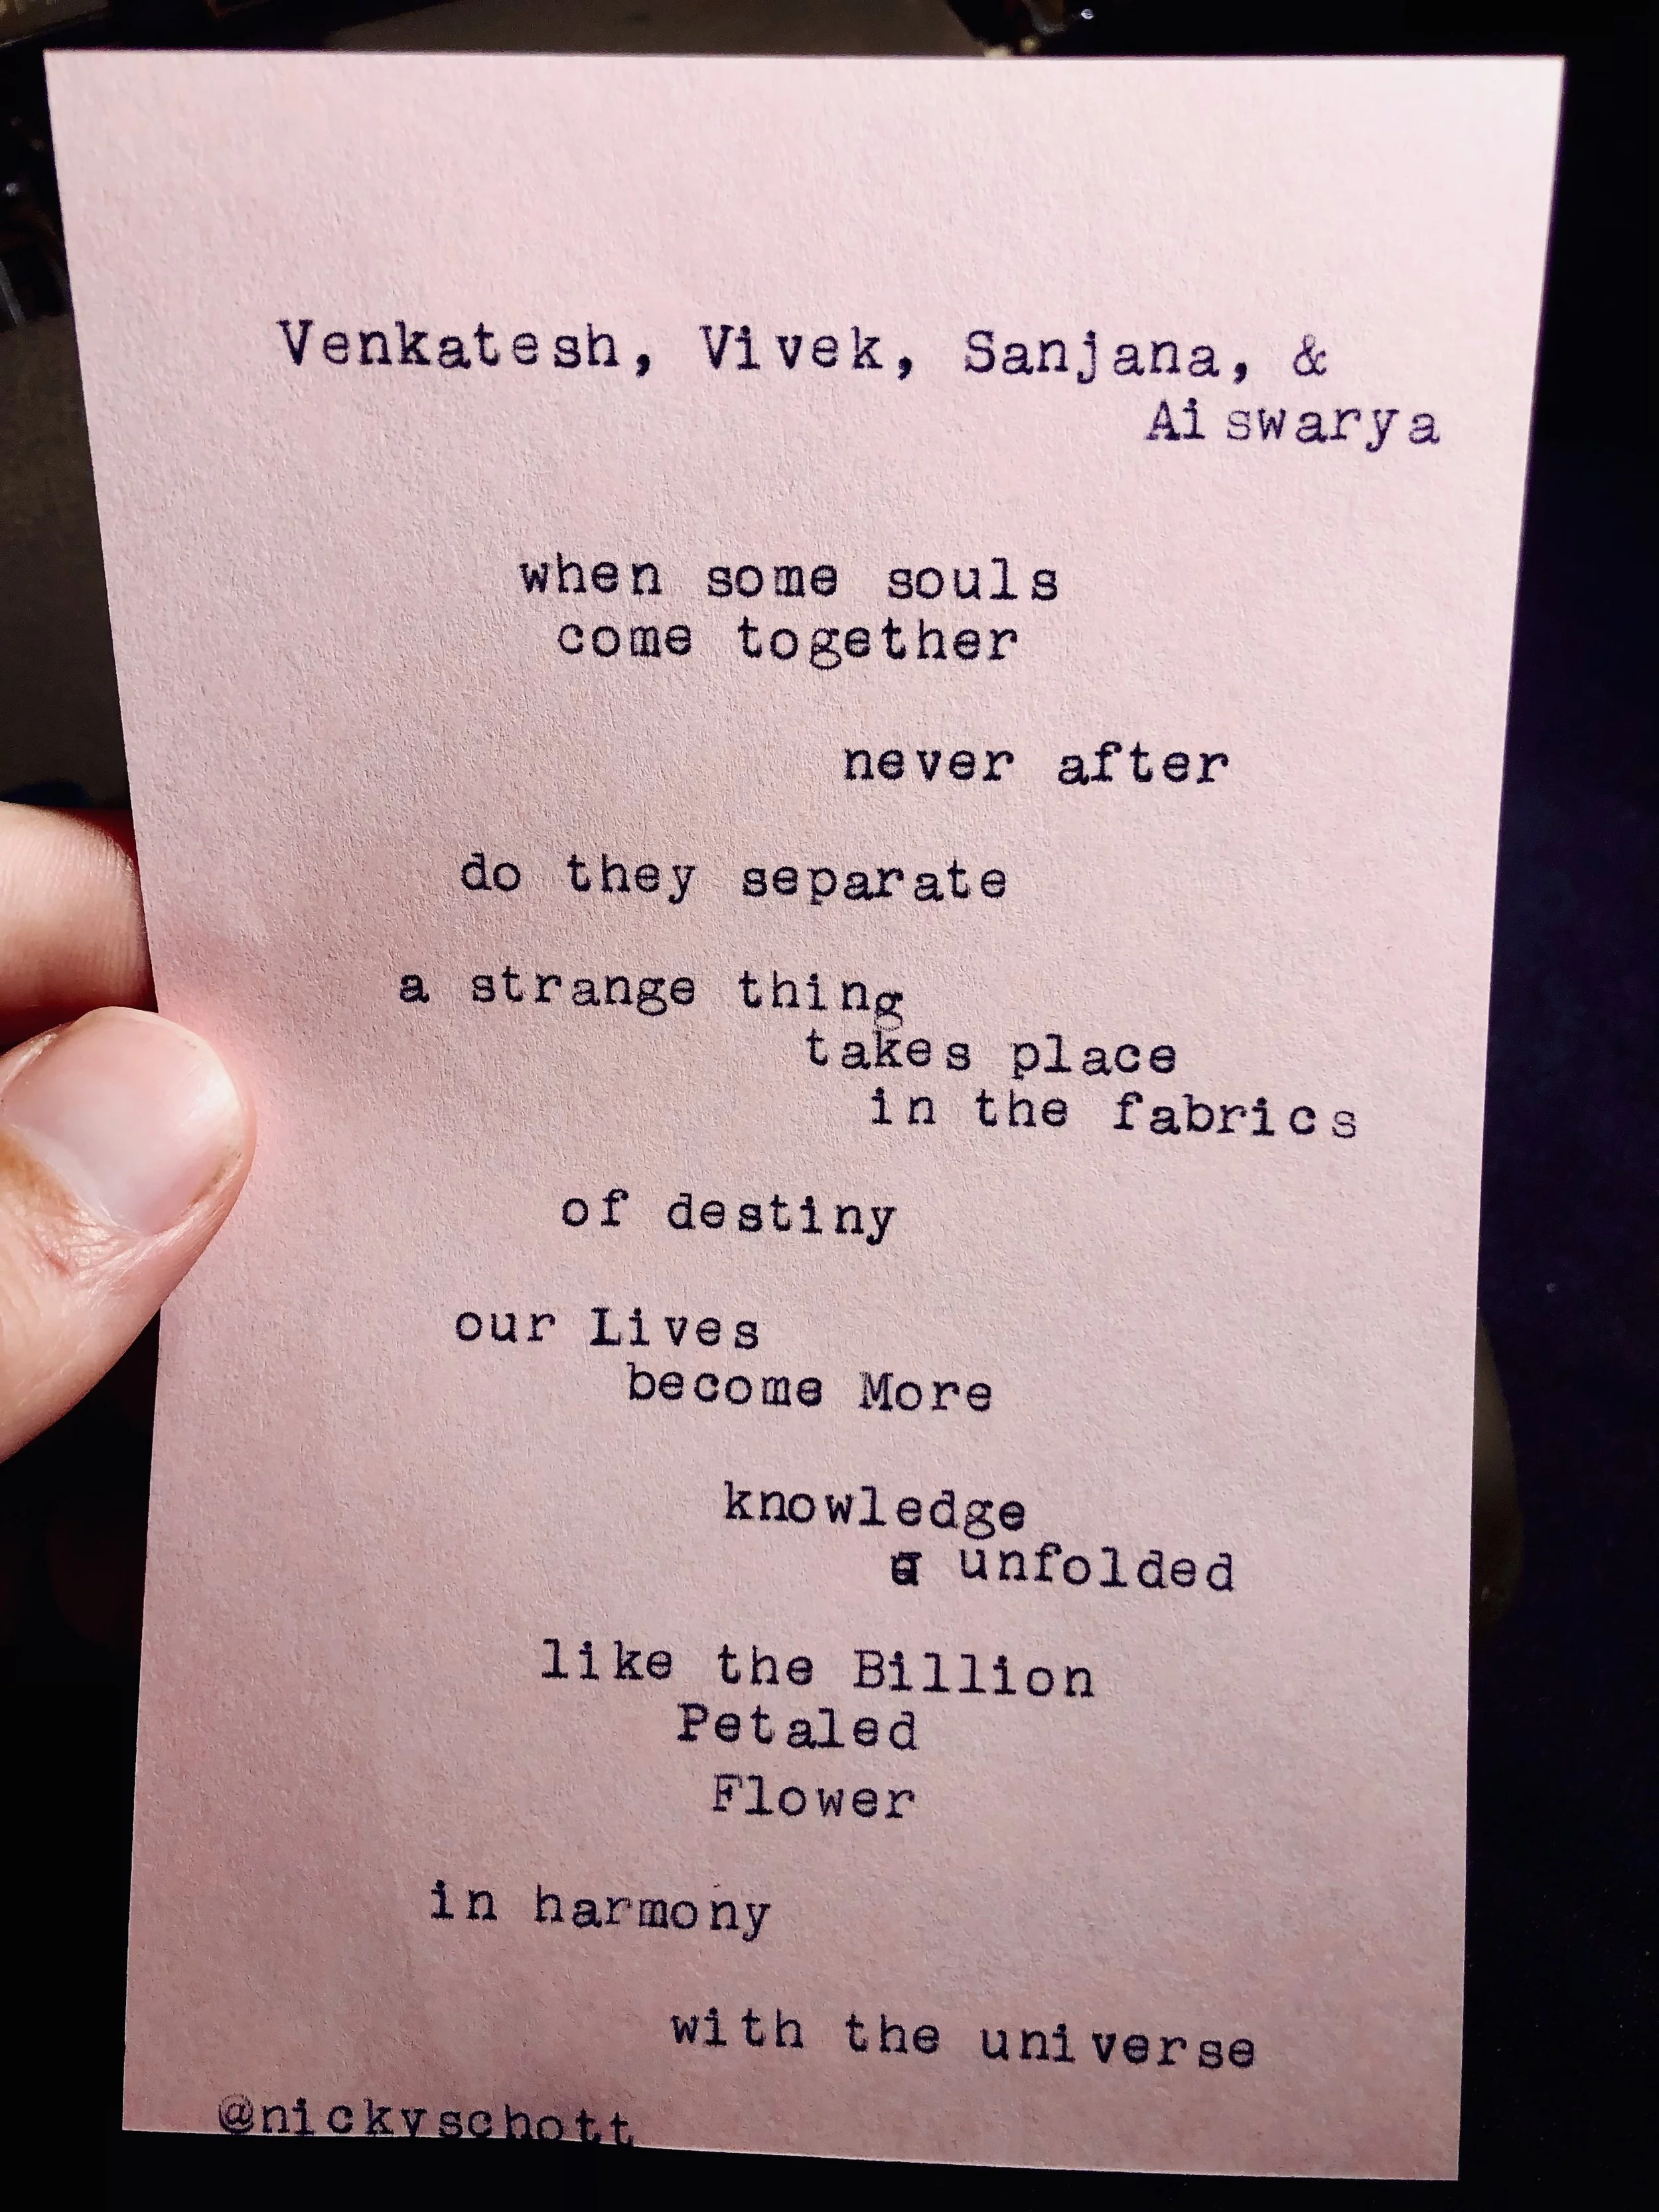 Venkatesh, Vivek, Sanjana, &
Aiswarya
when some souls
come together
never after
do they separate
a strange thing
takes place
in the fabrics
of destiny
our Lives
become More
knowledge
unfolded
like the Billion
Petaled
Flower
in harmony
with the universe
@nickyschott